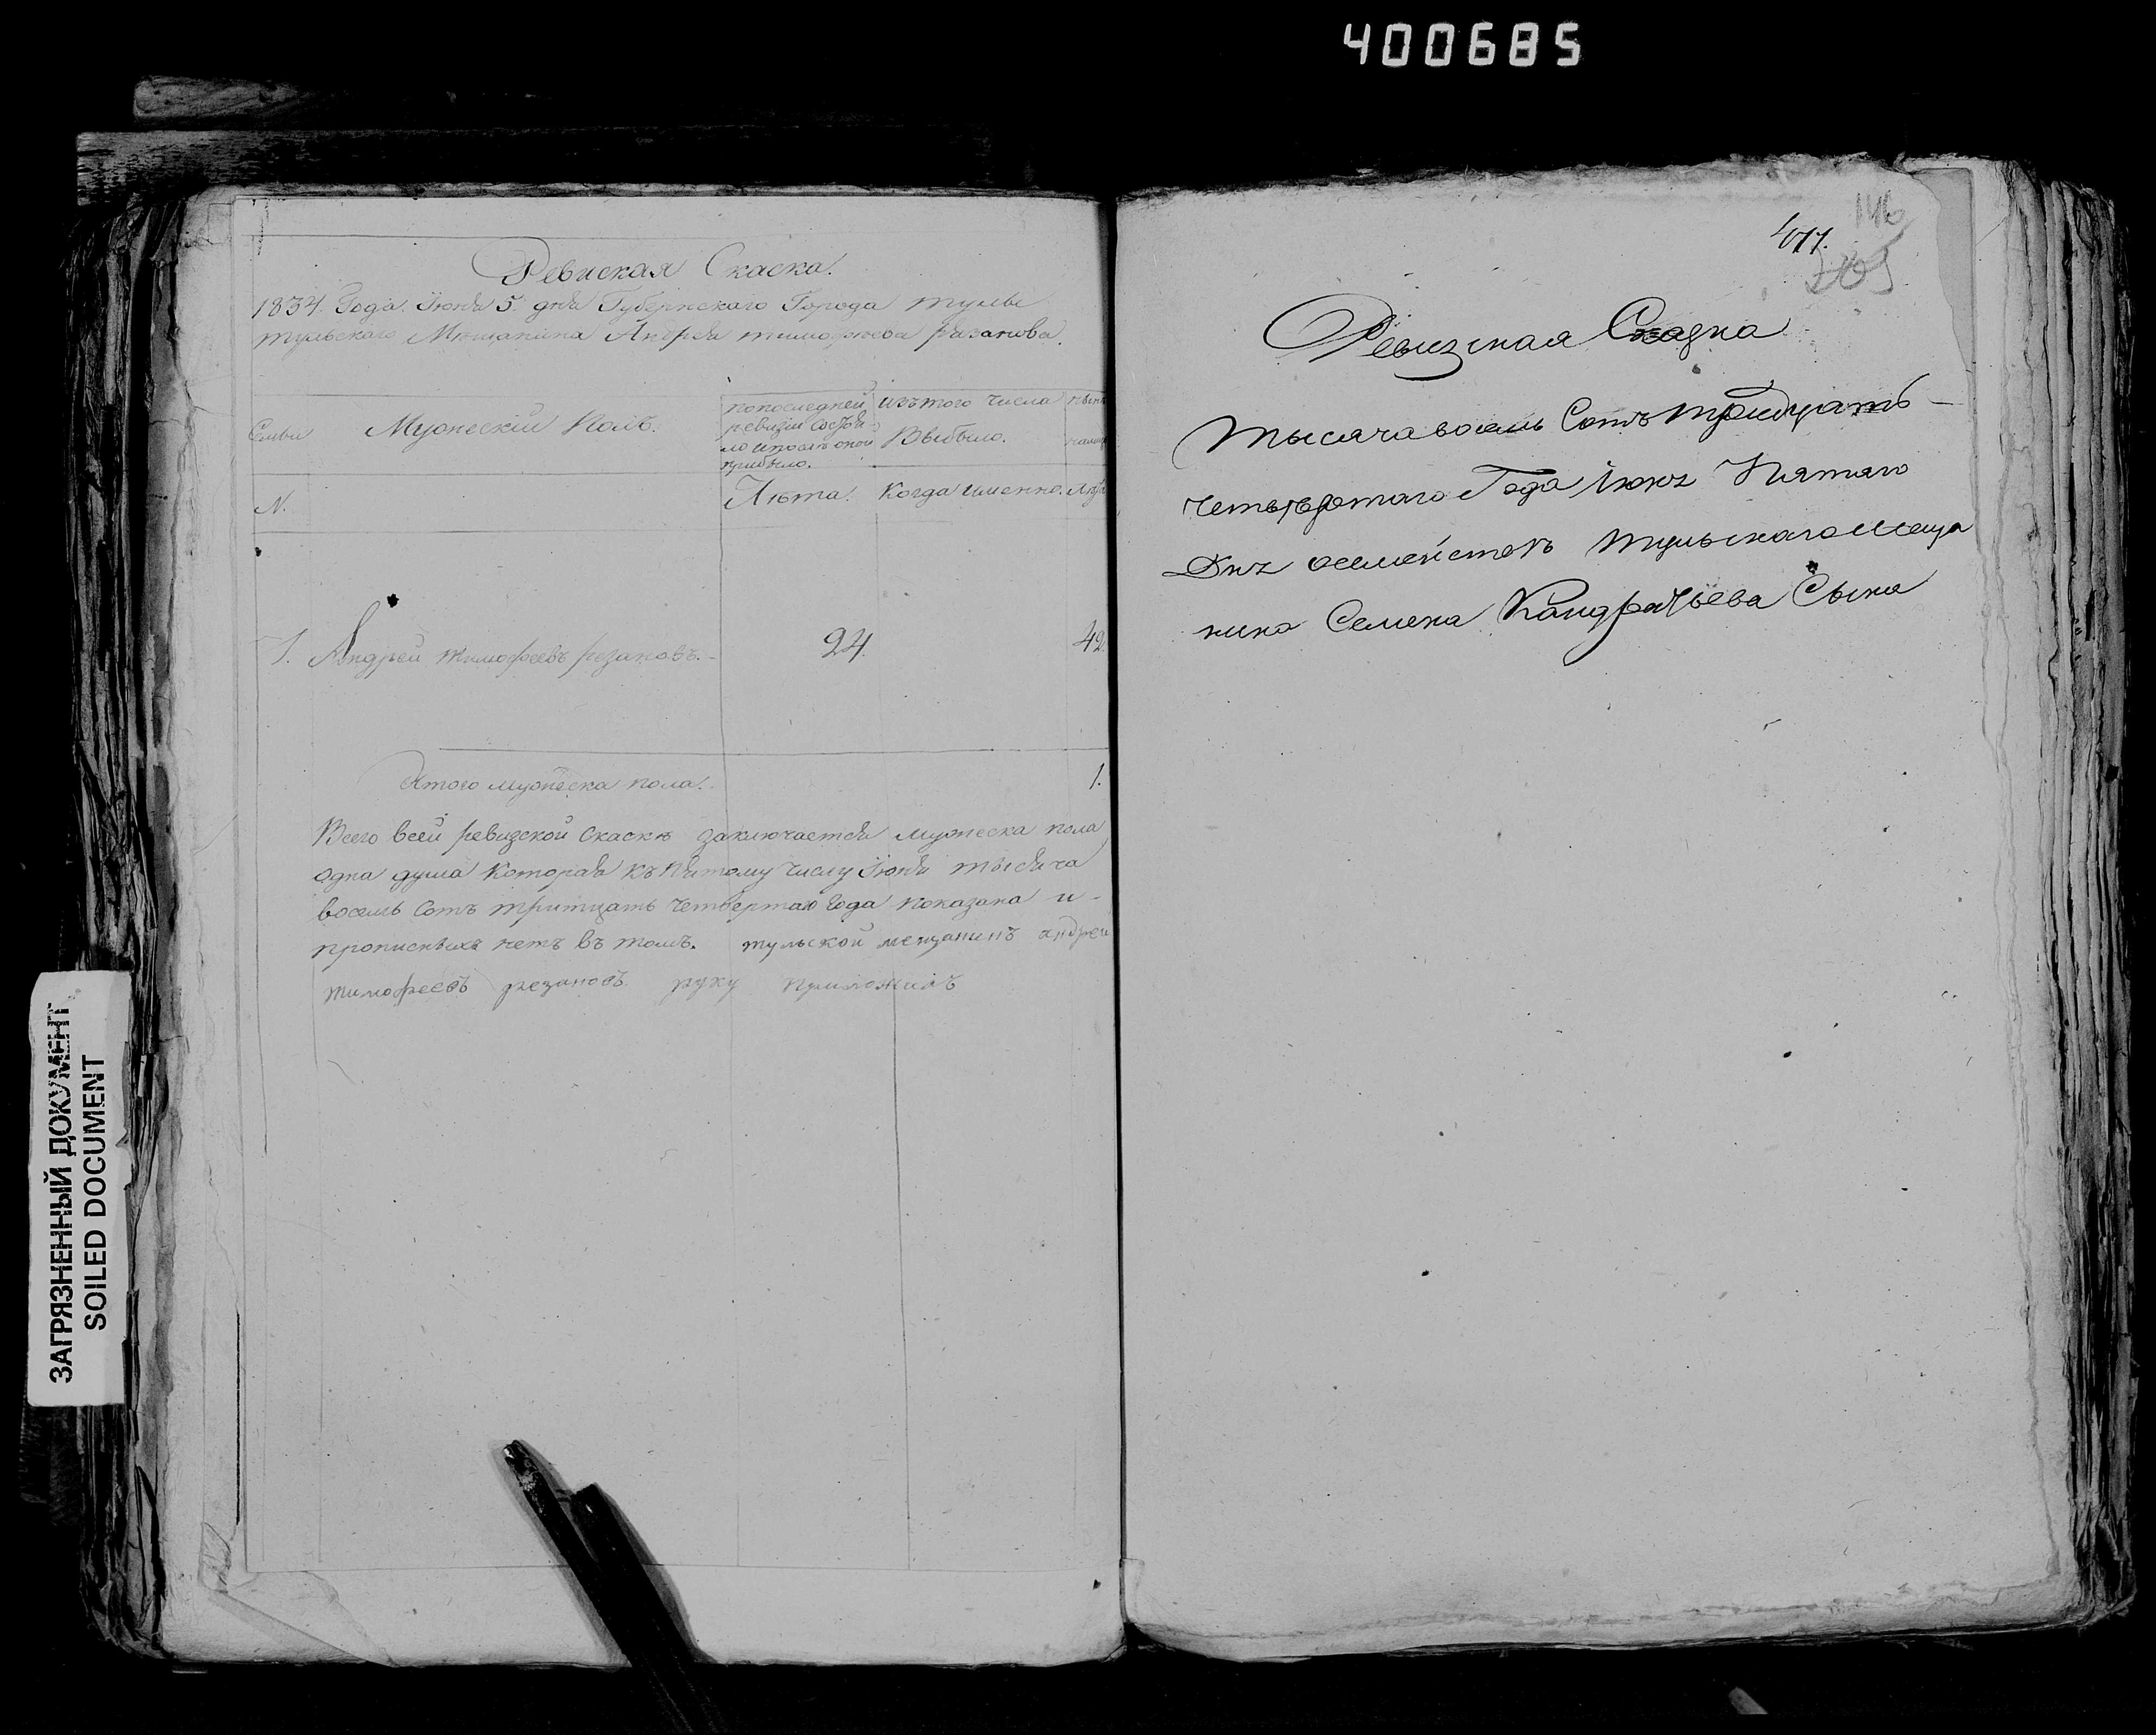 400685
Ревиская Скаска.
1834. Года. Июня 5. дня Губернскаго Города тулы
тульскаго Мющанина Андрея тимофеева резанова.
Семьи
Мужескій Полъ.
попоследней
ревизіи состоя-
ло ипосле оной
прибыло.
изътого числа
Выбыло.
N.
Люта.
Когда именно.
1. Андрей тимофеевъ резановъ.
24.
42.
Итого мужеска пола.
1.
Всего всей ревизской скаске заключается мужеска пола
одна душа которая къ пятому числу Июня тысяча
восемь сотъ тритцать четвертаго года показана и-
прописныхъ нетъ въ томъ. тульской мещанинъ андреи
тимофеевъ резановъ руку приложилъ
ЗАГРЯЗНЕННЫЙ ДОКУМЕНТ
SOILED DOCUMENT
146
477.
Ревизская Сказка
тысяча восемь Сотъ тридцать-
четвертаго Года Июня Пятаго
Дня осемействе тульскаго меща
нина Семена Кандратьева Сына